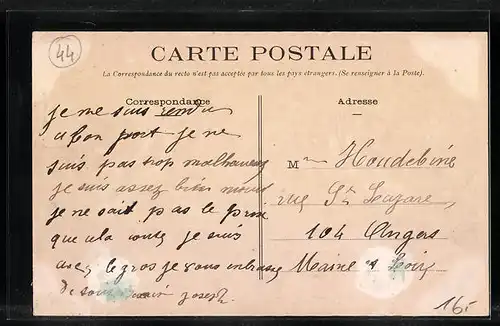 44
CARTE POSTALE
La Correspondance du recto n'est pas acceptée par tous les pays étrangers. (Se renseigner à la Poste).
Correspondance
Adresse
je me suis rendu
a bon port je ne
suis pas trop malheureux
je suis assez bien nourri
je ne sait pas le prix
que cela conte je suis
avec le gros je vous embrasse
joseph
Mme Houdebine
rue St Lazare,
104 Angers
Maine et Loire
16.-